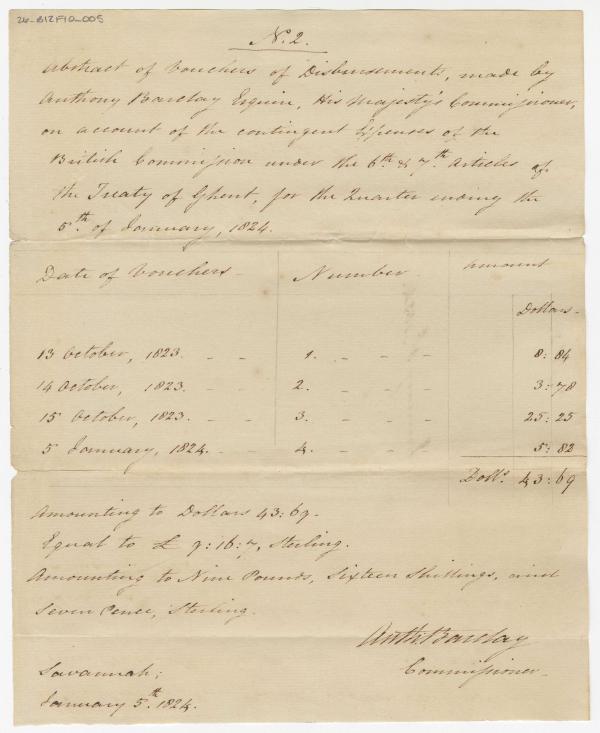 26_B12F10_005
No. 2.
Abstract of Vouchers of Disbursements, made by
Anthony Barclay Esquire, His Majesty's Commissioner,
on account of the contingent Expenses of the
British Commission under the 6th. & 7th. Articles of
the Treaty of Ghent, for the Quarter ending the
5th. of January, 1824.
Date of Vouchers - Number Amount
Dollars -
13 October, 1823. - - 1. - - - 8: 84
14 October, 1823. - - 2. - - - 3: 78
15 October, 1823. - - 3. - - - 25: 25
5 January, 1824. - - 4. - - - 5: 82
Dolls. 43: 69
Amounting to Dollars 43: 69.
Equal to £ 9: 16: 7, Sterling.
Amounting to Nine Pounds, Sixteen Shillings, and
Seven Pence, Sterling.
Anth. Barclay
Commissioner -
Savannah;
January 5th. 1824.